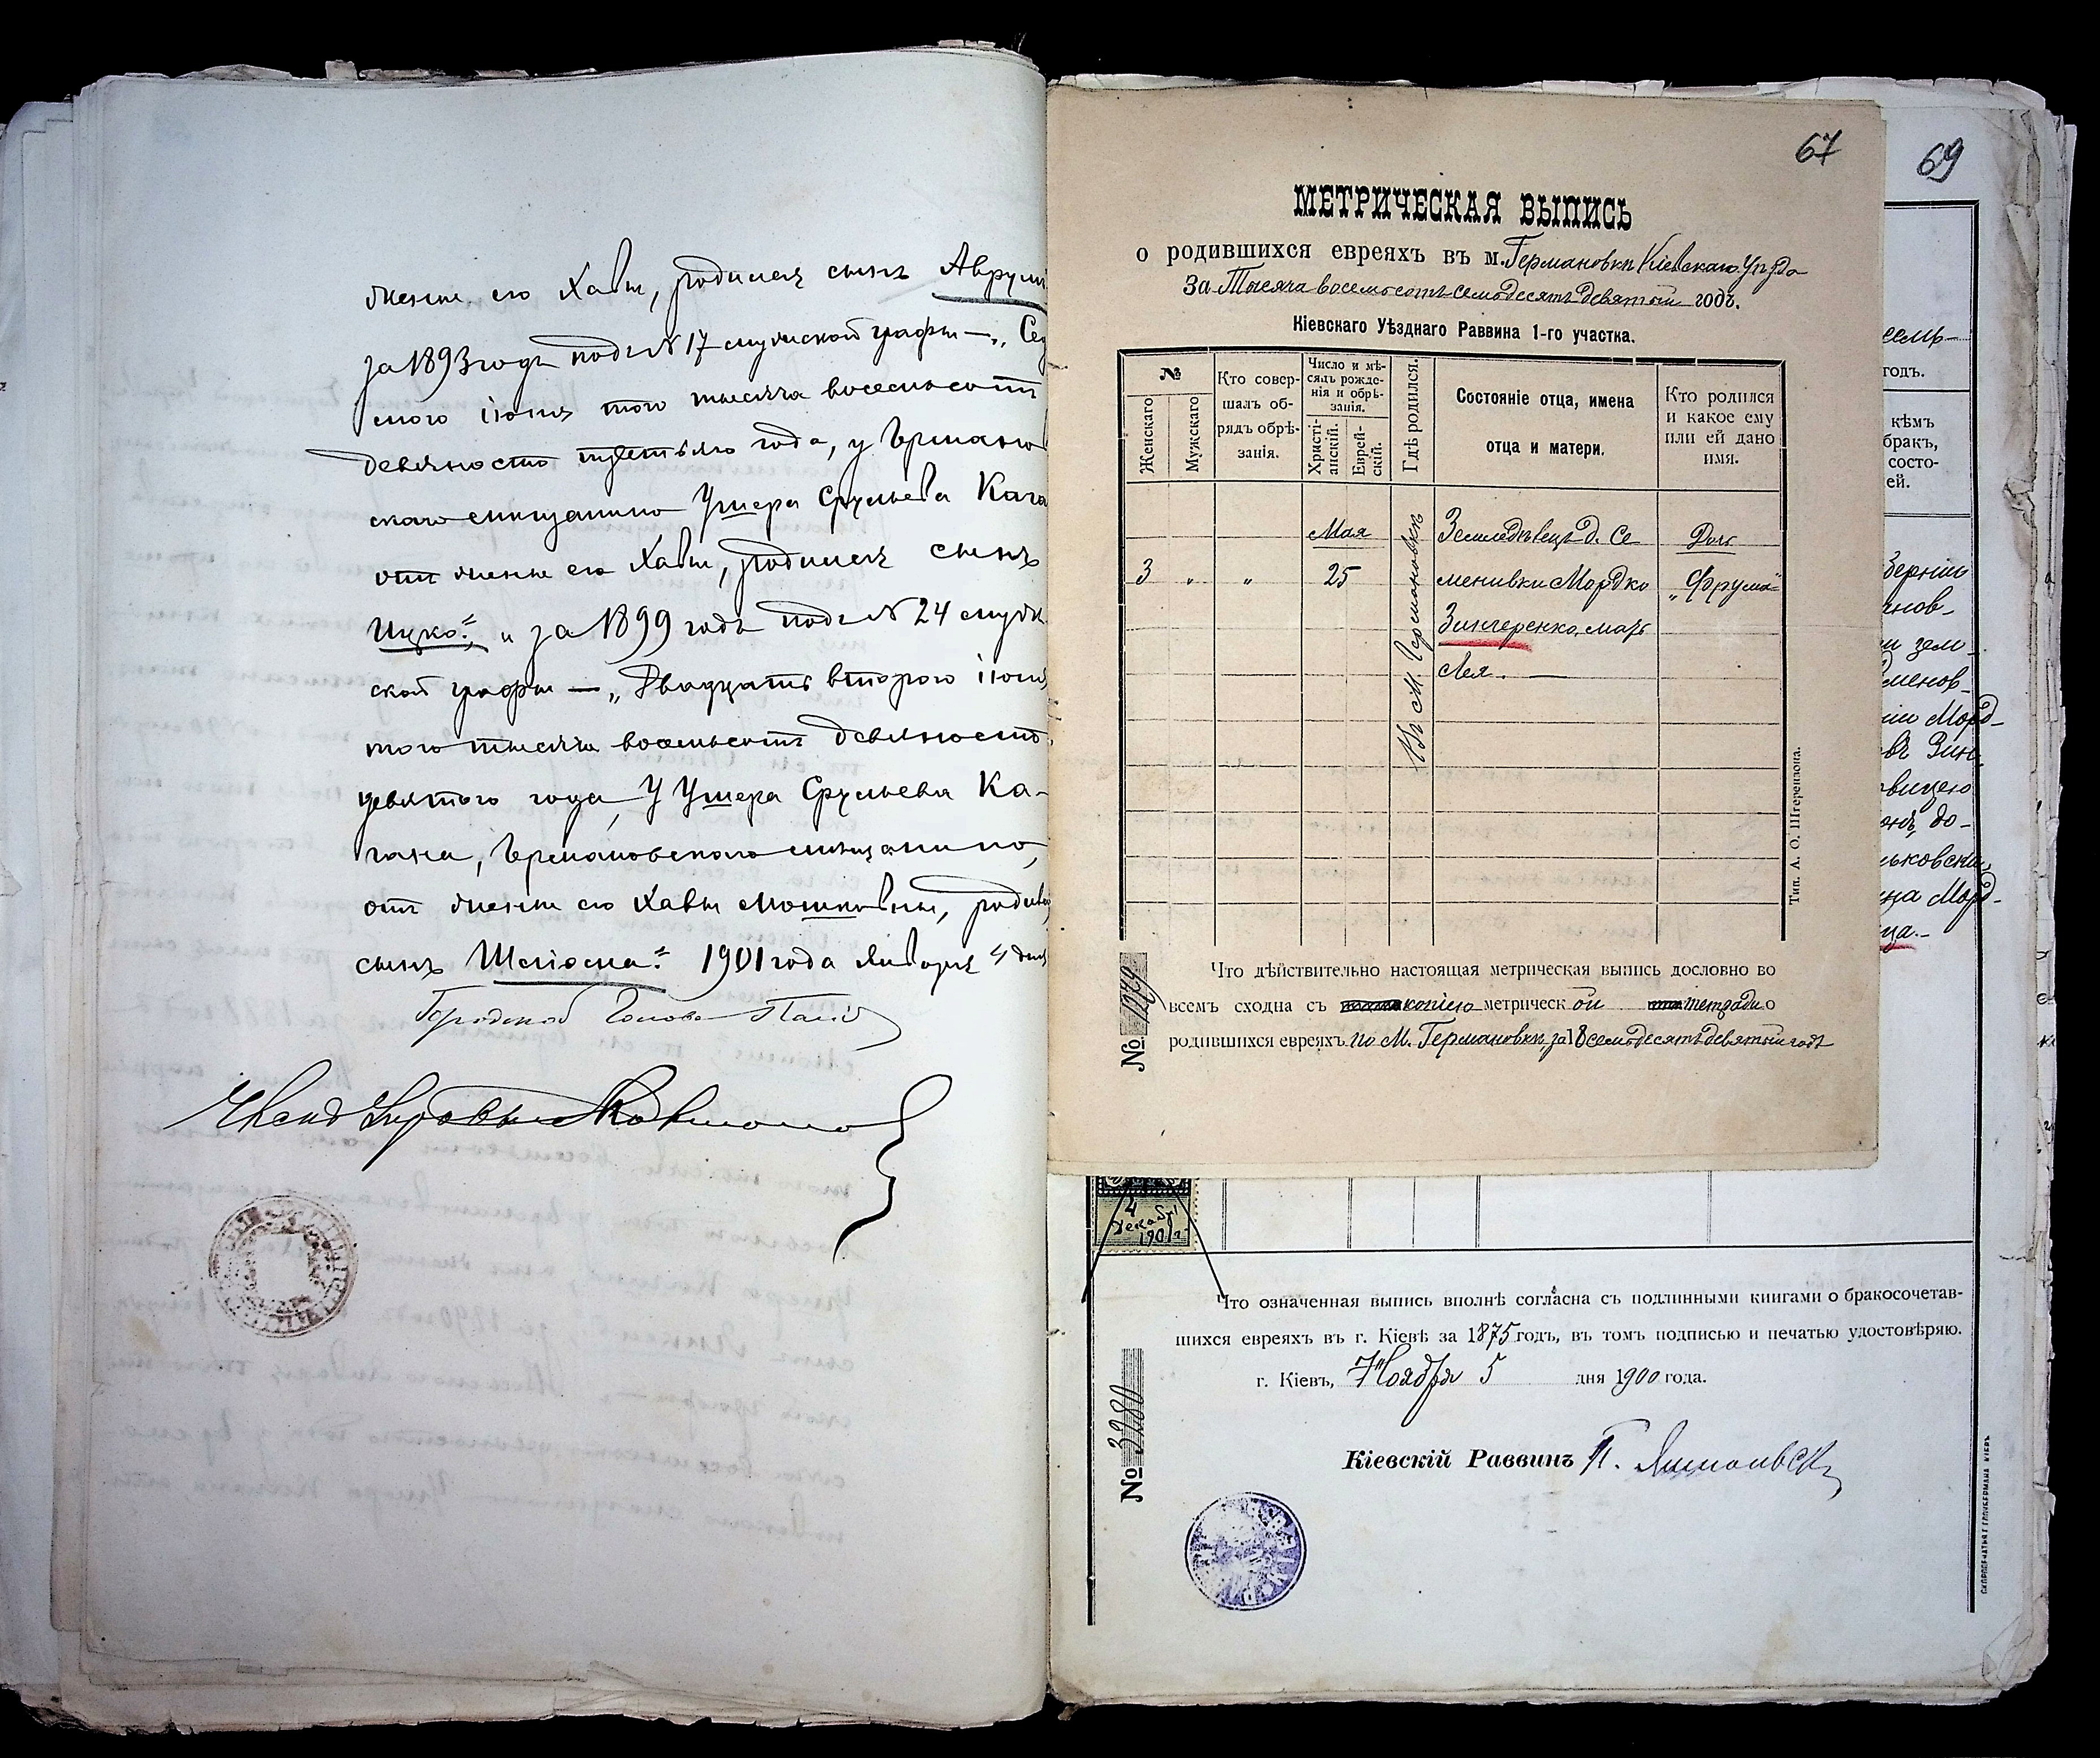 жены его Хавы, родился сынъ Аврумъ
за 1893 годъ подъ № 17 мужской графы —„ Сед
мого іюня того тысяча восемьсотъ
девяносто третьяго года, у Германов
скаго мещанина Ушера Срульева Кага
отъ жены его Хавы, родился сынъ
Ицко“, и за 1899 годъ подъ № 24 мужс
ской графы — „Двадцать втораго іюня
того тысяча восемьсотъ девяносто
девятого года, у Ушера Срульева Ка-
гана, Германовского мещанина,
отъ жены его Хавы Мошковны, родился
сынъ Шліома“. 1901 года Января 4 дня
Городской Голова
67
МЕТРИЧЕСКАЯ ВЫПИСЬ
о родившихся евреяхъ въ м. Германовки Кіевскаго Уѣзда
За Тысяча восемьсотъ семьдесятъ девятый годъ.
Кіевскаго Уѣзднаго Раввина 1-го участка.
№
Женскаго
Мужскаго
Кто совер-
шалъ об-
рядъ обрѣ-
занія.
Число и мѣ-
сяцъ рожде-
нія и обрѣ-
занія.
Христі-
анскій.
Еврей-
скій.
Гдѣ родился.
Состояніе отца, имена
отца и матери.
Кто родился
и какое ему
или ей дано
имя.
Мая Земледѣлецъ д. Се Дочь
3 „ „ 25 менивки Мордко „Фрума“
Зингеренко, мать
Лея. —
Въ М. Германовкѣ
Тип. А. О. Штерензона.
Что дѣйствительно настоящая метрическая выпись дословно во
всемъ сходна съ копіею метрической тетради о
родившихся евреяхъ по М. Германовкѣ за 18 семьдесятъ девятый годъ
№ 1279
69
семь
годъ.
кѣмъ
бракъ,
состо-
ей.
берніи
анов-
и зем-
менов-
іи Морд-
въ Зин-
овицею
онъ, до-
ьковска
на Морд-
ца.-
4
Декабря
1901 г.
Что означенная выпись вполнѣ согласна съ подлинными книгами о бракосочетав-
шихся евреяхъ въ г. Кіевѣ за 1875 годъ, въ томъ подписью и печатью удостовѣряю.
г. Кіевъ, Ноября 5 дня 1900 года.
№ 3280
Кіевскій Раввинъ